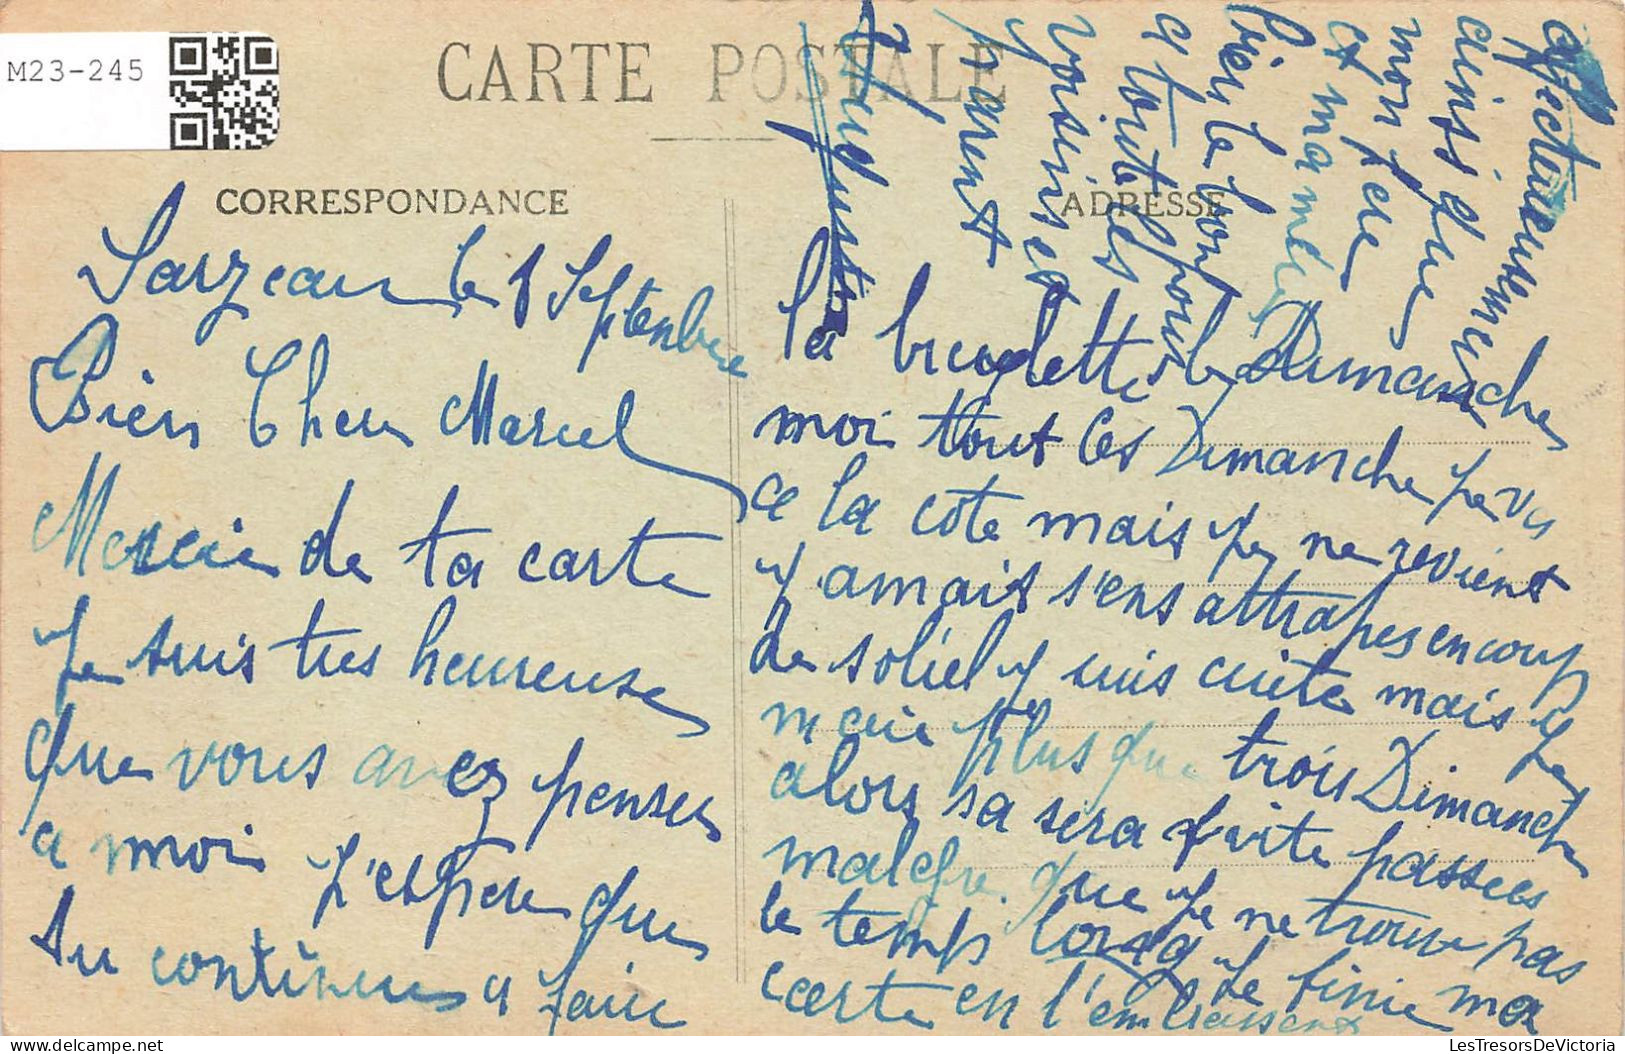 M23-245
CARTE POSTALE
CORRESPONDANCE
ADRESSE
Sarzeau le 8 Septembre
Bien Cher Marcel
Mercie de ta carte
je suis tres heureuse
que vous avez penser
a moi j'espere que
tu continues a faire
la bicyclette le Dimanche
moi tout les Dimanche je vis
a la cote mais je ne revient
jamais s'ens attrapes en coup
de soliel j suis cuite mais je
n'aie plus que trois Dimanche
alors sa sera vite passees
malgre que je ne trouve pas
le temp long je finie ma
carte en t'embrassent
affectueusement
ainsi que
mon pere
et ma mere
bien le bonj
a toute les
voisines et
parent
LesTresorsDeVictoria